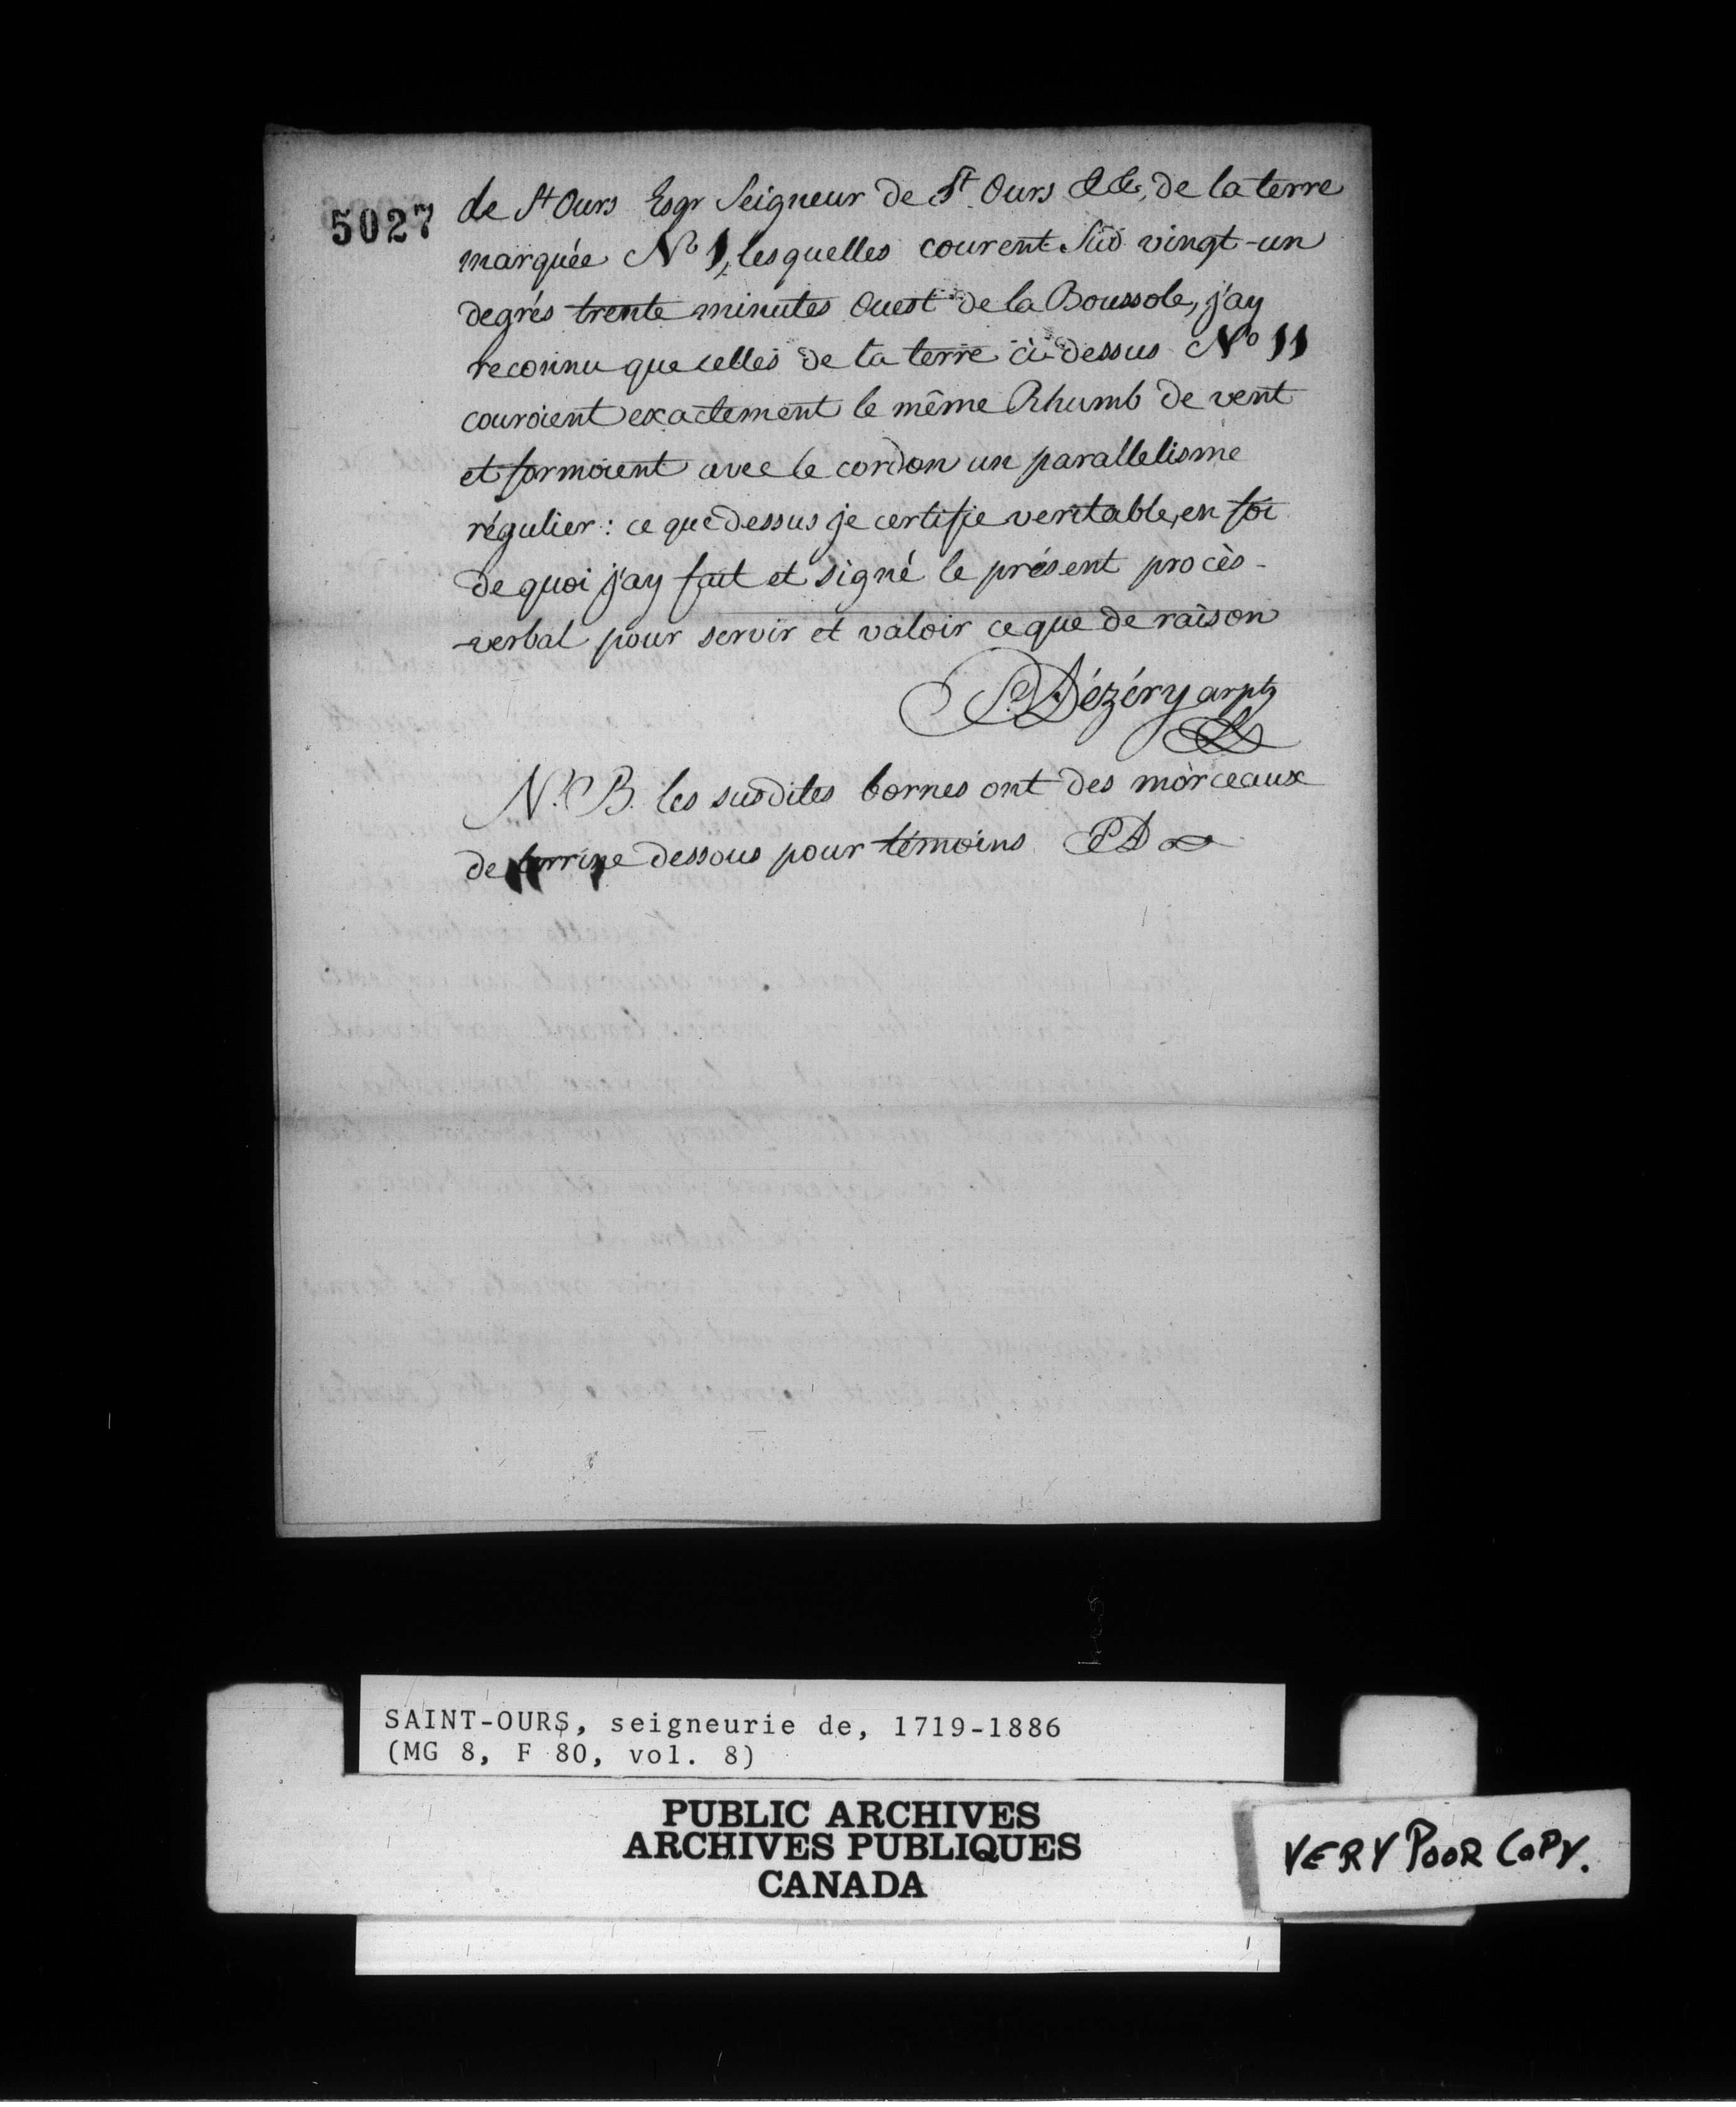 5027
de St Ours Esqr Seigneur de St. Ours &c&c, de la terre
marquée No 1, lesquelles courent Sud vingt-un
degrés trente minutes Ouest de la Boussole, j'ay
reconnu que celles de la terre ci-dessus No 11
couroient exactement le même Rhumb de vent
et formoient avec le cordon un parallelisme
régulier : ce que dessus je certifie veritable, en foi
de quoi j'ay fait et signé le présent procès-
-verbal pour servir et valoir ce que de raison
P. D. Dézéry arptr
N.B. les susdites bornes ont des morceaux
de terrine dessous pour témoins PD
SAINT-OURS, seigneurie de, 1719-1886
(MG 8, F 80, vol. 8)
PUBLIC ARCHIVES
ARCHIVES PUBLIQUES
CANADA
VERY POOR COPY.